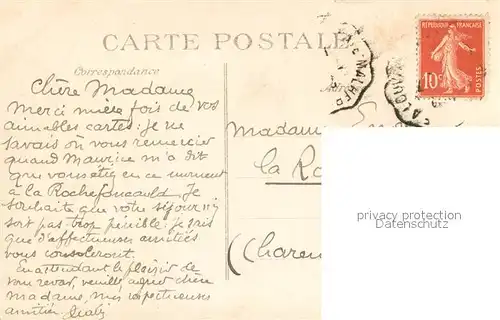 CARTE POSTALE
Correspondance
RÉPUBLIQUE FRANÇAISE
10c
POSTES
Chère Madame
Merci mille fois de vos
aimables cartes: je ne
savais où vous remercier
quand Maurice m'a dit
que vous étiez en ce moment
à la Rochefoucauld. Je
souhaite que votre séjour n'y
soit pas trop pénible: je sais
que d'affectueuses amitiés
vous consoleront.
En attendant le plaisir de
vous revoir, veuillez agréer chère
madame, mes respectueuses
amitiés
Madame
la Ro
(Charen
privacy protection
Datenschutz